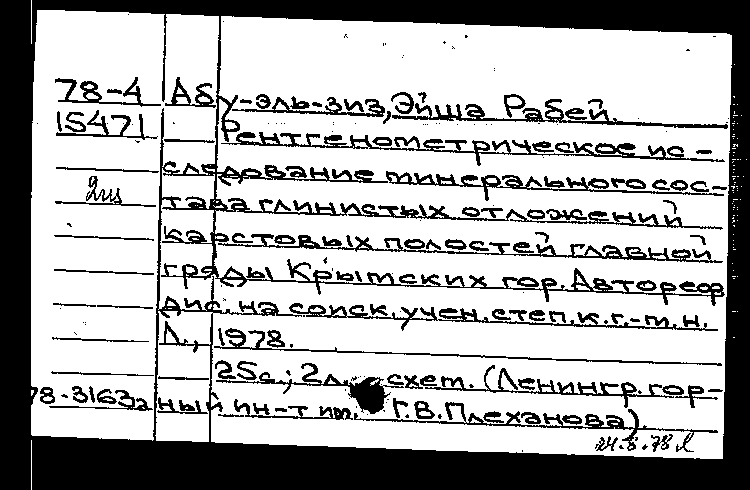 78-4 Абу-эль-зиз, Эйша Рабей.
15471 Рентгенометрическое ис-
следование минерального сос-
тава глинистых отложений
карстовых полостей главной
гряды Крымских гор. Автореф
дис. на соиск. учен. степ. к. г.-м. н.
Л., 1978.
25с.; 2л. схем. (Ленингр. гор-
78-31632 ный ин-т им. Г.В. Плеханова).
24.8.78